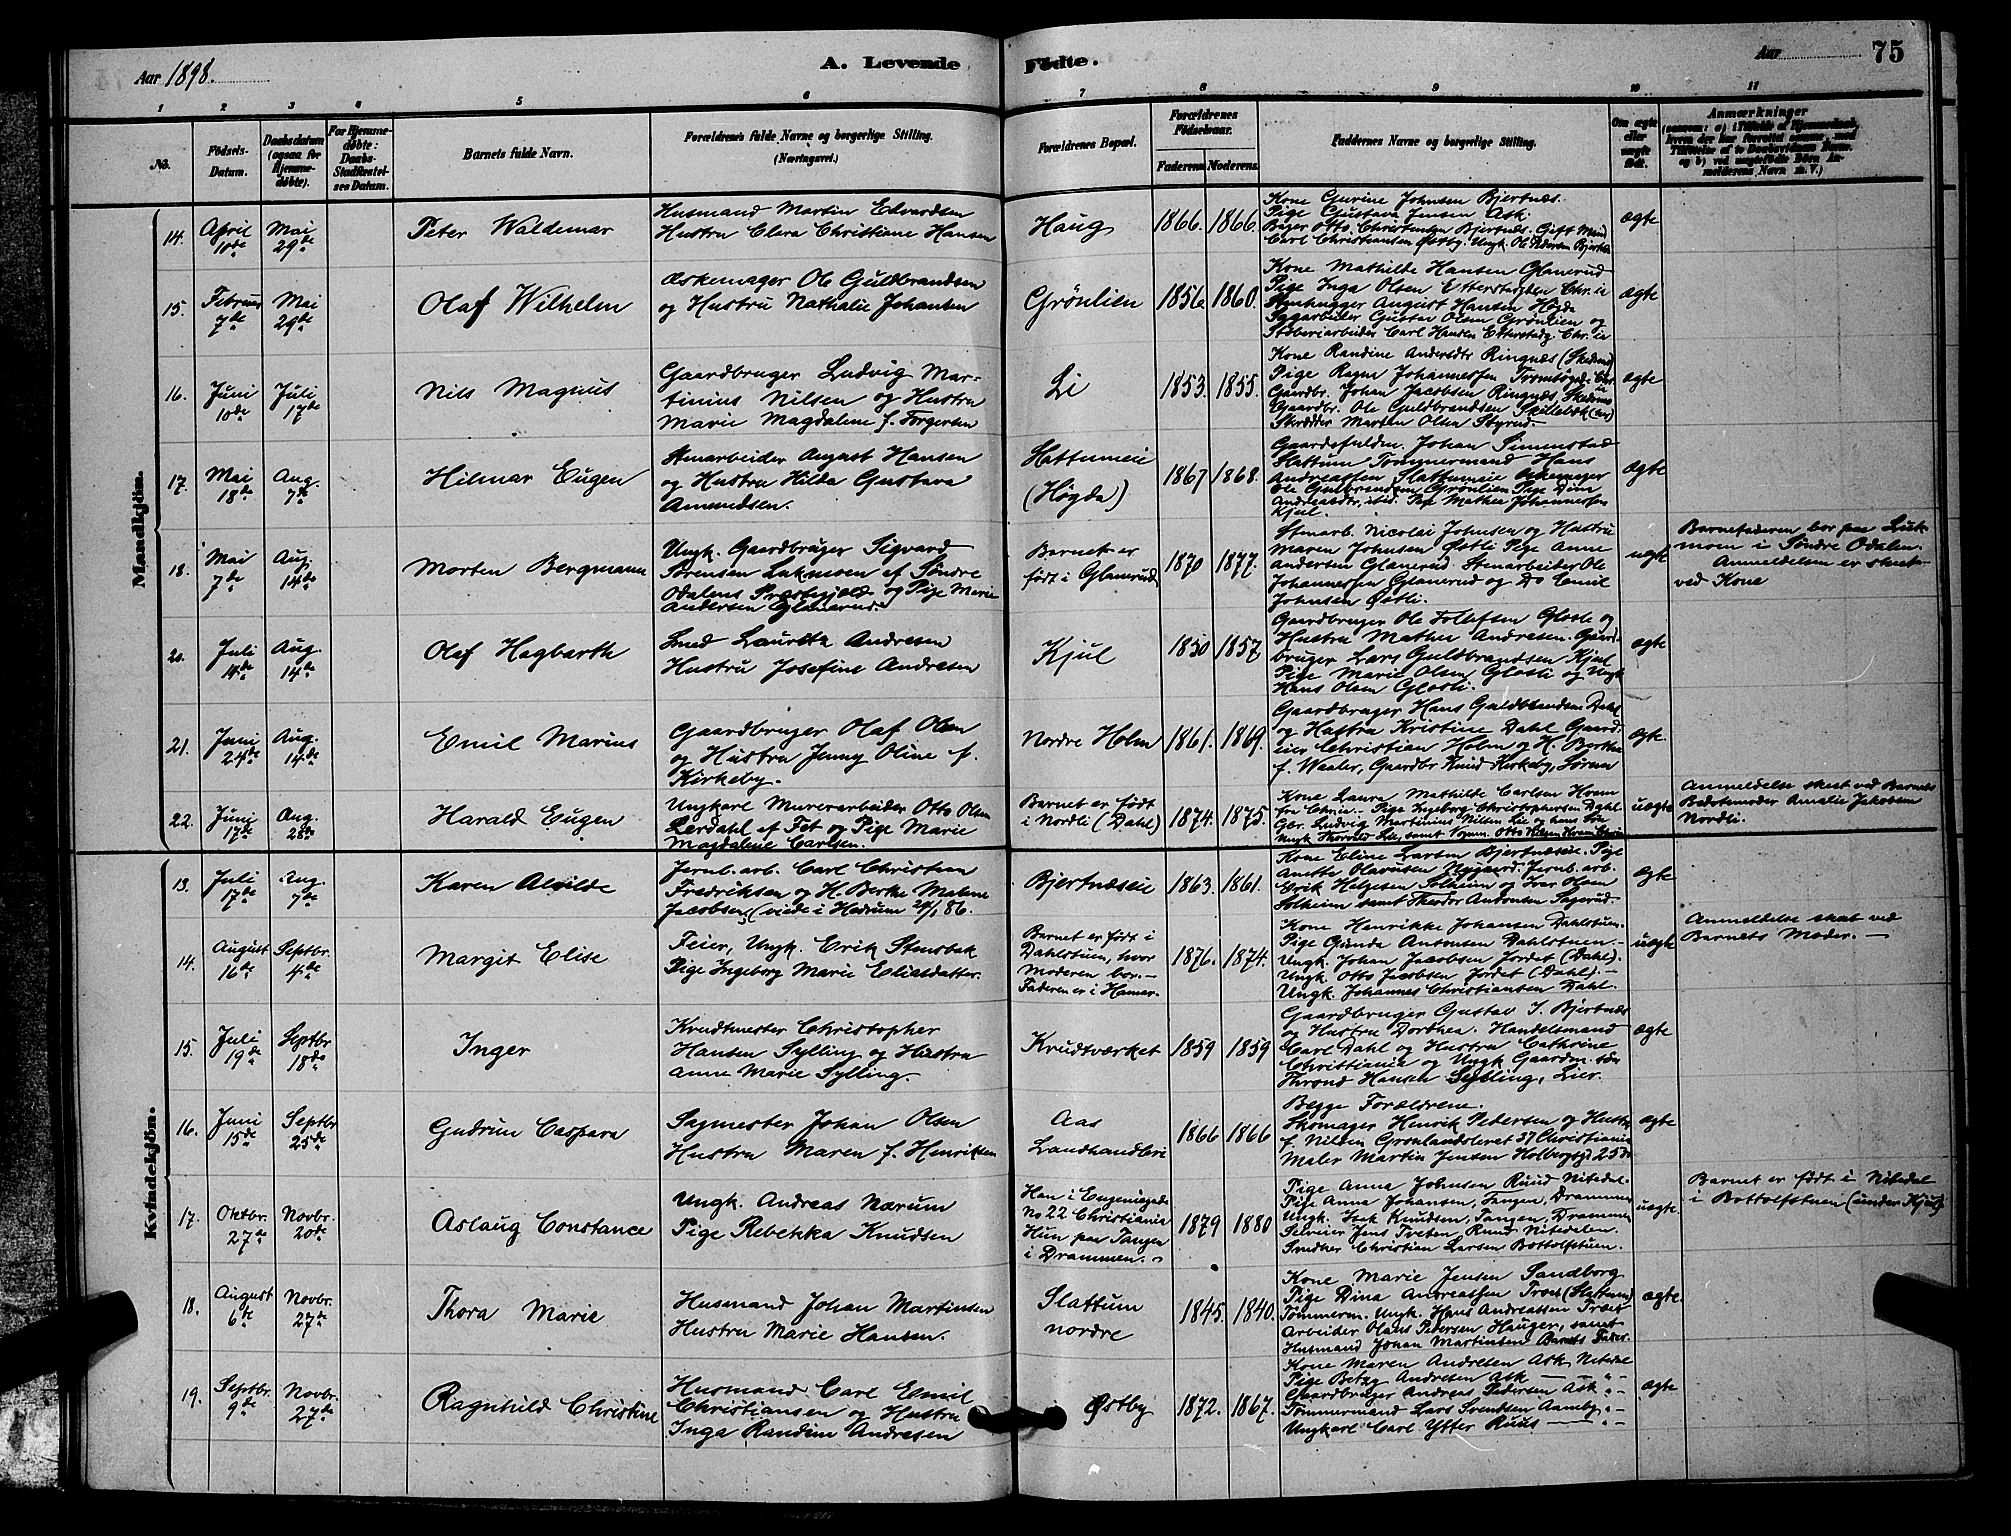 Aar 1898.
A. Levende Fødte.
Aar
75
1 2 3 4 5 6 7 8 9 10 11
No.
Fødsels-
Datum.
Daabsdatum
(ogsaa for
Hjemme-
døbte).
For Hjemme-
døbte:
Daabs-
Stadfæstel-
ses Datum.
Barnets fulde Navn.
Forældrenes fulde Navne og borgerlige Stilling.
(Næringsvei.)
Forældrenes Bopæl.
Forældrenes
Fødselsaar.
Faderens
Moderens
Faddernes Navne og borgerlige Stilling.
Om ægte
eller
uægte
født.
Anmærkninger
Mandkjön.
14.
April
10de
Mai
29de
Peter Waldemar
Husmand Martin Edvardsen
Hustru Clara Christiane Hansen
Haug
1866. 1866.
Kone Gurine Johnsen Bjertnæs.
Pige Gustava Jensen Ask.
Bager Otto Christensen Bjertnæs. Gift Mand
Carl Christiansen Østby. Ungk. Ole Pedersen
ægte
15.
Februar
7de
Mai
29de
Olaf Wilhelm
Æskemager Ole Guldbrandsen
og Hustru Nathalie Johansen
Grönlien
1856 1860.
Kone Mathilde Hansen Glanerud
Pige Inga Olsen Etterstadgden Chr.ia
Stenhugger August Hansen Högda
Sagarbeider Gustav Olsen Grönlien og
Støberiarbeider Carl Hansen Etterstadg. Chr.ia
ægte
16.
Juni
10de
Juli
17de
Nils Magnus
Gaardbruger Ludvig Mar-
tinius Nilsen og Hustru
Marie Magdalene f. Torgersen
Li
1853. 1855.
Kone Randine Andersdtr Ringnæs (Skedsmo)
Pige Ragna Johannessen
Gaardbr. Johan Jacobsen Ringnæs, Skedsmo
Gaardbr. Ole Guldbrandsen Skillebæk
Skrædder Martin Olsen Styrud.
ægte
17.
Mai
18de
Aug.
7de
Hilmar Eugen
Stenarbeider August Hansen
og Hustru Hilda Gustava
Amundsen.
Hattumeie
(Högda)
1867 1868.
Johan Simenstad
Slattum Tømmermand Hans
Andreassen Slattumeie
Ole Gulbrandsen Grönlien Pige Dina
Andreasdtr. ibid. Pige Mathea Johannessen
Kjul.
ægte
18.
Mai
7de
Aug.
14de
Morten Bergmann
Ungk. Gaardbruger Sigvard
Sörensen Lukmoen af Söndre
Odalens Præstegjeld og Pige Marie
Andersen Glanerud
Barnet er
født i Glanerud
1870 1877.
Stenarb. Nicolai Johnsen og Hustru
Maren Johnsen Østli Pige Anne
Andersen Glanerud. Stenarbeider Ole
Johannessen Glanerud og Do Emil
Johnsen Østli.
uægte
Barnefaderen bor paa Luk-
moen i Söndre Odalen.
Anmeldelsen er skeet
ved Kone
20.
Juli
14de
Aug.
14de
Olaf Hagbarth
Smed Lauritz Andresen
Hustru Josefine Andresen
Kjul
1850 1857
Gaardbruger Ole Tollefsen Glosli og
Hustru Mathea Andresen. Gaard-
bruger Lars Guldbrandsen Kjul
Pige Marie Olsen Glosli og Ungk
Hans Olsen Glosli.
ægte
21.
Juni
24de
Aug.
14de
Emil Marius
Gaardbruger Olaf Olsen
og Hustru Jenny Oline f.
Kirkeby.
Nordre Holm
1861. 1869.
Gaardbruger Hans Guldbrandsen Dahl
og Hustru Kristine Dahl Gaard-
eier Christian Holm og H. Berthe
f. Waaler, Gaardbr Knud Kirkeby, Sörum
ægte.
22.
Juni
17de
Aug.
28de
Harald Eugen
Ungkarl Murerarbeider Otto Olsen
Lerdahl af Fet og Pige Marie
Magdalene Carlsen.
Barnet er født
i Nordli (Dahl)
1874. 1875.
Kone Laura Mathilde Carlsen
fra Chr.ia. Pige Ingeborg Christophersen Dahl.
Gbr. Ludvig Martinius Nilsen Lie og hans Søn
Ungk. Thorvald Lie, samt Otto Nilsen
uægte
Anmeldelse skeet ved Barnets
Bedstemoder Amalie Jakobsen
Nordli.
Kvindekjön.
13.
Juli
17de
Aug.
7de
Karen Alvilde
Jernb. arb. Carl Christian
Fredriksen og H. Berthe Malene
Jacobsen (viede i Hedrum 24/1 86.
Bjertnæseie
1863. 1861.
Kone Eline Larsen Bjertnæseie. Pige
Anette Olausen Nygaard. Jernb. arb.
Erik Helgesen Solheim og Ivar Olsen
Solheim samt Theodor Antonsen Sagerud.
ægte
14.
August
16de
Septbr.
4de
Margit Elise
Feier, Ungk. Erik Stensbak
Pige Ingeborg Marie Eliasdatter.
Barnet er født i
Dahlstuen, hvor
Moderen bor.—
Faderen er i Hamar.
1876. 1874.
Kone Henrikke Johansen Dahlstuen.
Pige Gunda Antonsen Dahlstuen.—
Ungk. Johan Jacobsen Jordet (Dahl).
Ungk. Otto Jacobsen Jordet (Dahl).—
Ungk. Johannes Christiansen Dahl.
uægte
Anmeldelse skeet ved
Barnets Moder.—
15.
Juli
19de
Septbr
18de
Inger
Krudtmester Christopher
Hansen Sylling og Hustru
Anne Marie Sylling.
Krudtværket
1859 1859
Gaardbruger Gustav J. Bjertnæs
og Hustru Dorthea. Handelsmand
Carl Dahl og Hustru Cathrine
Christiania og Ungk. Gaardm. søn
Thrond Hansen Sylling, Lier.
ægte
16.
Juni
15de
Septbr
25de
Gudrun Caspara
Sagmester Johan Olsen
Hustru Maren f. Henriksen
Aas
Landhandleri
1866 1866
Begge Forældrene.
Skomager Henrik Pedersen og Hustru
f. Nilsen Grønlandsleret 37 Christiania
Maler Martin Jensen Holbergsgd 25de
ægte
17.
Oktbr.
27de
Novbr.
20de
Aslaug Constance
Ungk. Andreas Nærum
Pige Rebekka Knudsen
Han i Eugeniagade
No 22 Christiania
Hun paa Tangen
i Drammen.
1879 1880
Pige Anna Johnsen Ruud Nitedal.
Pige Anna Johansen, Tangen, Drammen
Ungk. Isak Knudsen, Tangen, Drammen
Selveier Jens Tveten, Ruud Nitedalen.
Snedker Christian Larsen Bottolfstuen.
uægte
Barnet er født i Nitedal
i Bottolfstuen (under Kjul)
18.
August
6te
Novbr.
27de
Thora Marie
Husmand Johan Martinsen
Hustru Marie Hansen.
Slattum
nordre
1845. 1840.
Kone Marie Jensen Sandborg
Pige Dina Andreassen Træet (Slattum)
Tømmerm. Ungk. Hans Andreassen Træet
Arbeider Olaus Pedersen Hauger, samt
Husmand Johan Martinsen Barnets Fader.
ægte
19.
Septbr.
9de
Novbr.
27de
Ragnhild Christine
Husmand Carl Emil
Christiansen og Hustru
Inga Randine Andresen
Østby
1872. 1867.
Kone Maren Andresen Ask Nitedal
Pige Betzy Andresen Ask — " —
Gaardbruger Andreas Pedersen Ask " —
Tømmermand Lars Svendsen Aamby " —
Ungkarl Carl Ruud — " —
ægte